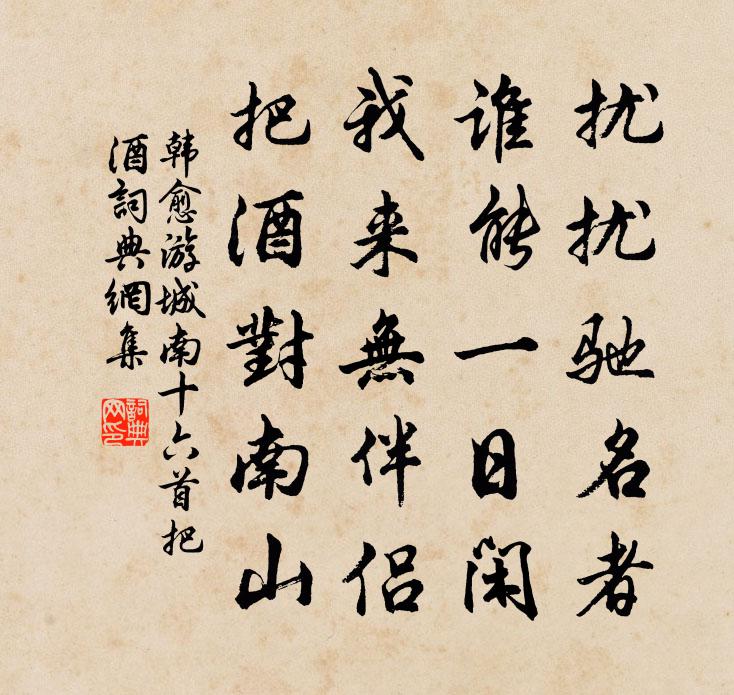 扰扰驰名者
谁能一日闲
我来無伴侣
把酒對南山
韩愈游城南十六首把
酒詞典網集
詞典
网印